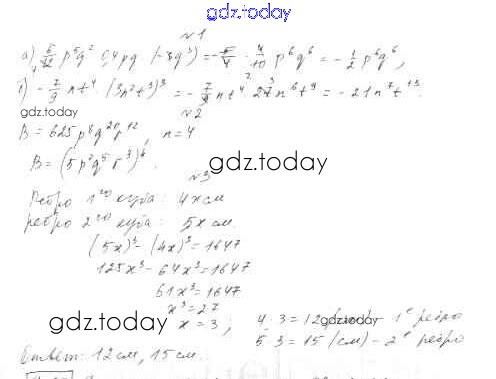 gdz.today
№1
а) 5/12 p⁵q² 0,4pq (-3q³) = -5/4 · 4/10 p⁶q⁶ = -1/2 p⁶q⁶,
б) -7/9 nt⁴ (3n²t³)³ = -7/9 nt⁴ · 27n⁶t⁹ = -21n⁷t¹³.
gdz.today
№2
B = 625p⁸q²⁰r¹², n=4
B = (5p²q⁵r³)⁴.
gdz.today
№3
Ребро 1го куба: 4x см
ребро 2го куба: 5x см.
(5x)³ - (4x)³ = 1647
125x³ - 64x³ = 1647
61x³ = 1647
x³ = 27
gdz.today
x = 3; 4·3=12 gdz.today - 1е ребро
5·3=15 (см) - 2е ребро
Ответ: 12 см, 15 см.